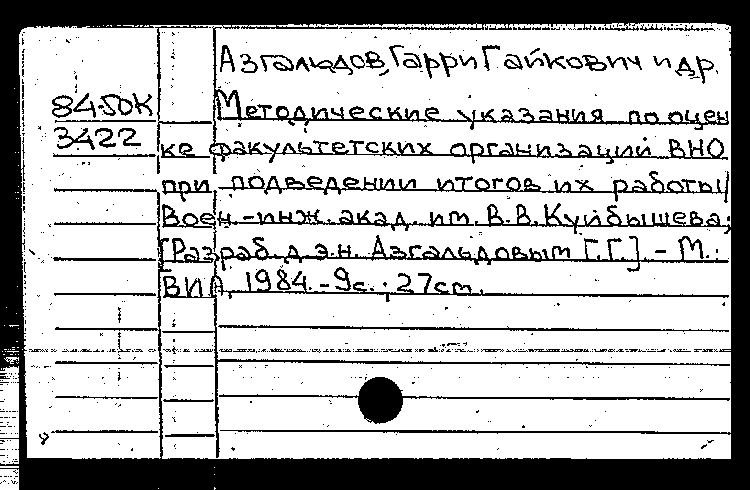 Азгальдов, Гарри Гайкович и др.
84-50К Методические указания по оцен
3422 ке факультетских организаций ВНО
при подведении итогов их работы/
Воен.-инж. акад. им. В.В. Куйбышева;
[Разраб. д.э.н. Азгальдовым Г.Г.]. - М.:
ВИА, 1984. - 9с.; 27см.